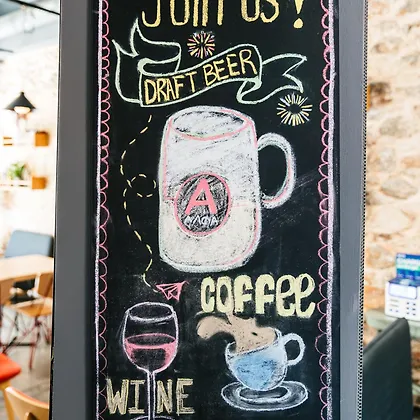 JOIN US!
DRAFT BEER
A
ΑΛΦΑ
COFFEE
WINE